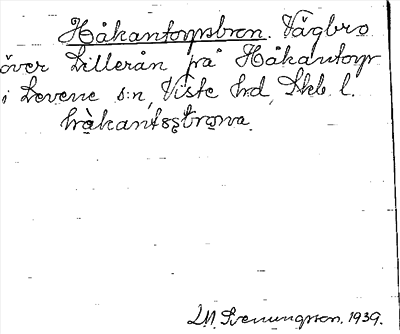 Håkantorpsbron. Vägbro
över Lillerån på Håkantorp
i Levene s:n, Viste hd, Skb. l.
hàkantǫștrǫwa.
LM. Svenungsson. 1939.